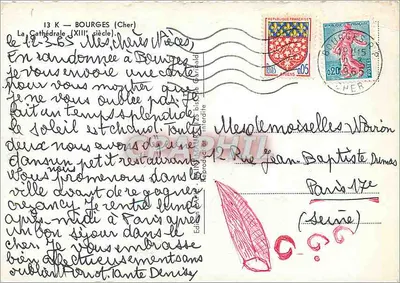 13 K — BOURGES (Cher)
La Cathédrale (XIII° siècle)
le 12-3-65 Mes chères Nièces,
En randonnée à Bourges
je vous envoie une carte
pour vous montrer que
je ne vous oublie pas. Il
fait un temps splendide
le soleil est chaud. Tous
deux nous avons déjeuné
dans un petit restaurant
nous promenons dans la
ville avant de regagner
Crézancy. Je rentre lundi
après-midi à Paris après
un bon séjour dans le
cher. Je vous embrasse
bien affectueusement sans
oublier Tante Denise
RÉPUBLIQUE FRANÇAISE
0,05
AMIENS
0,20
1965
CHER
Mesdemoiselles
12 Rue Jean Baptiste Dumas
Paris 17e
(Seine)
interdite